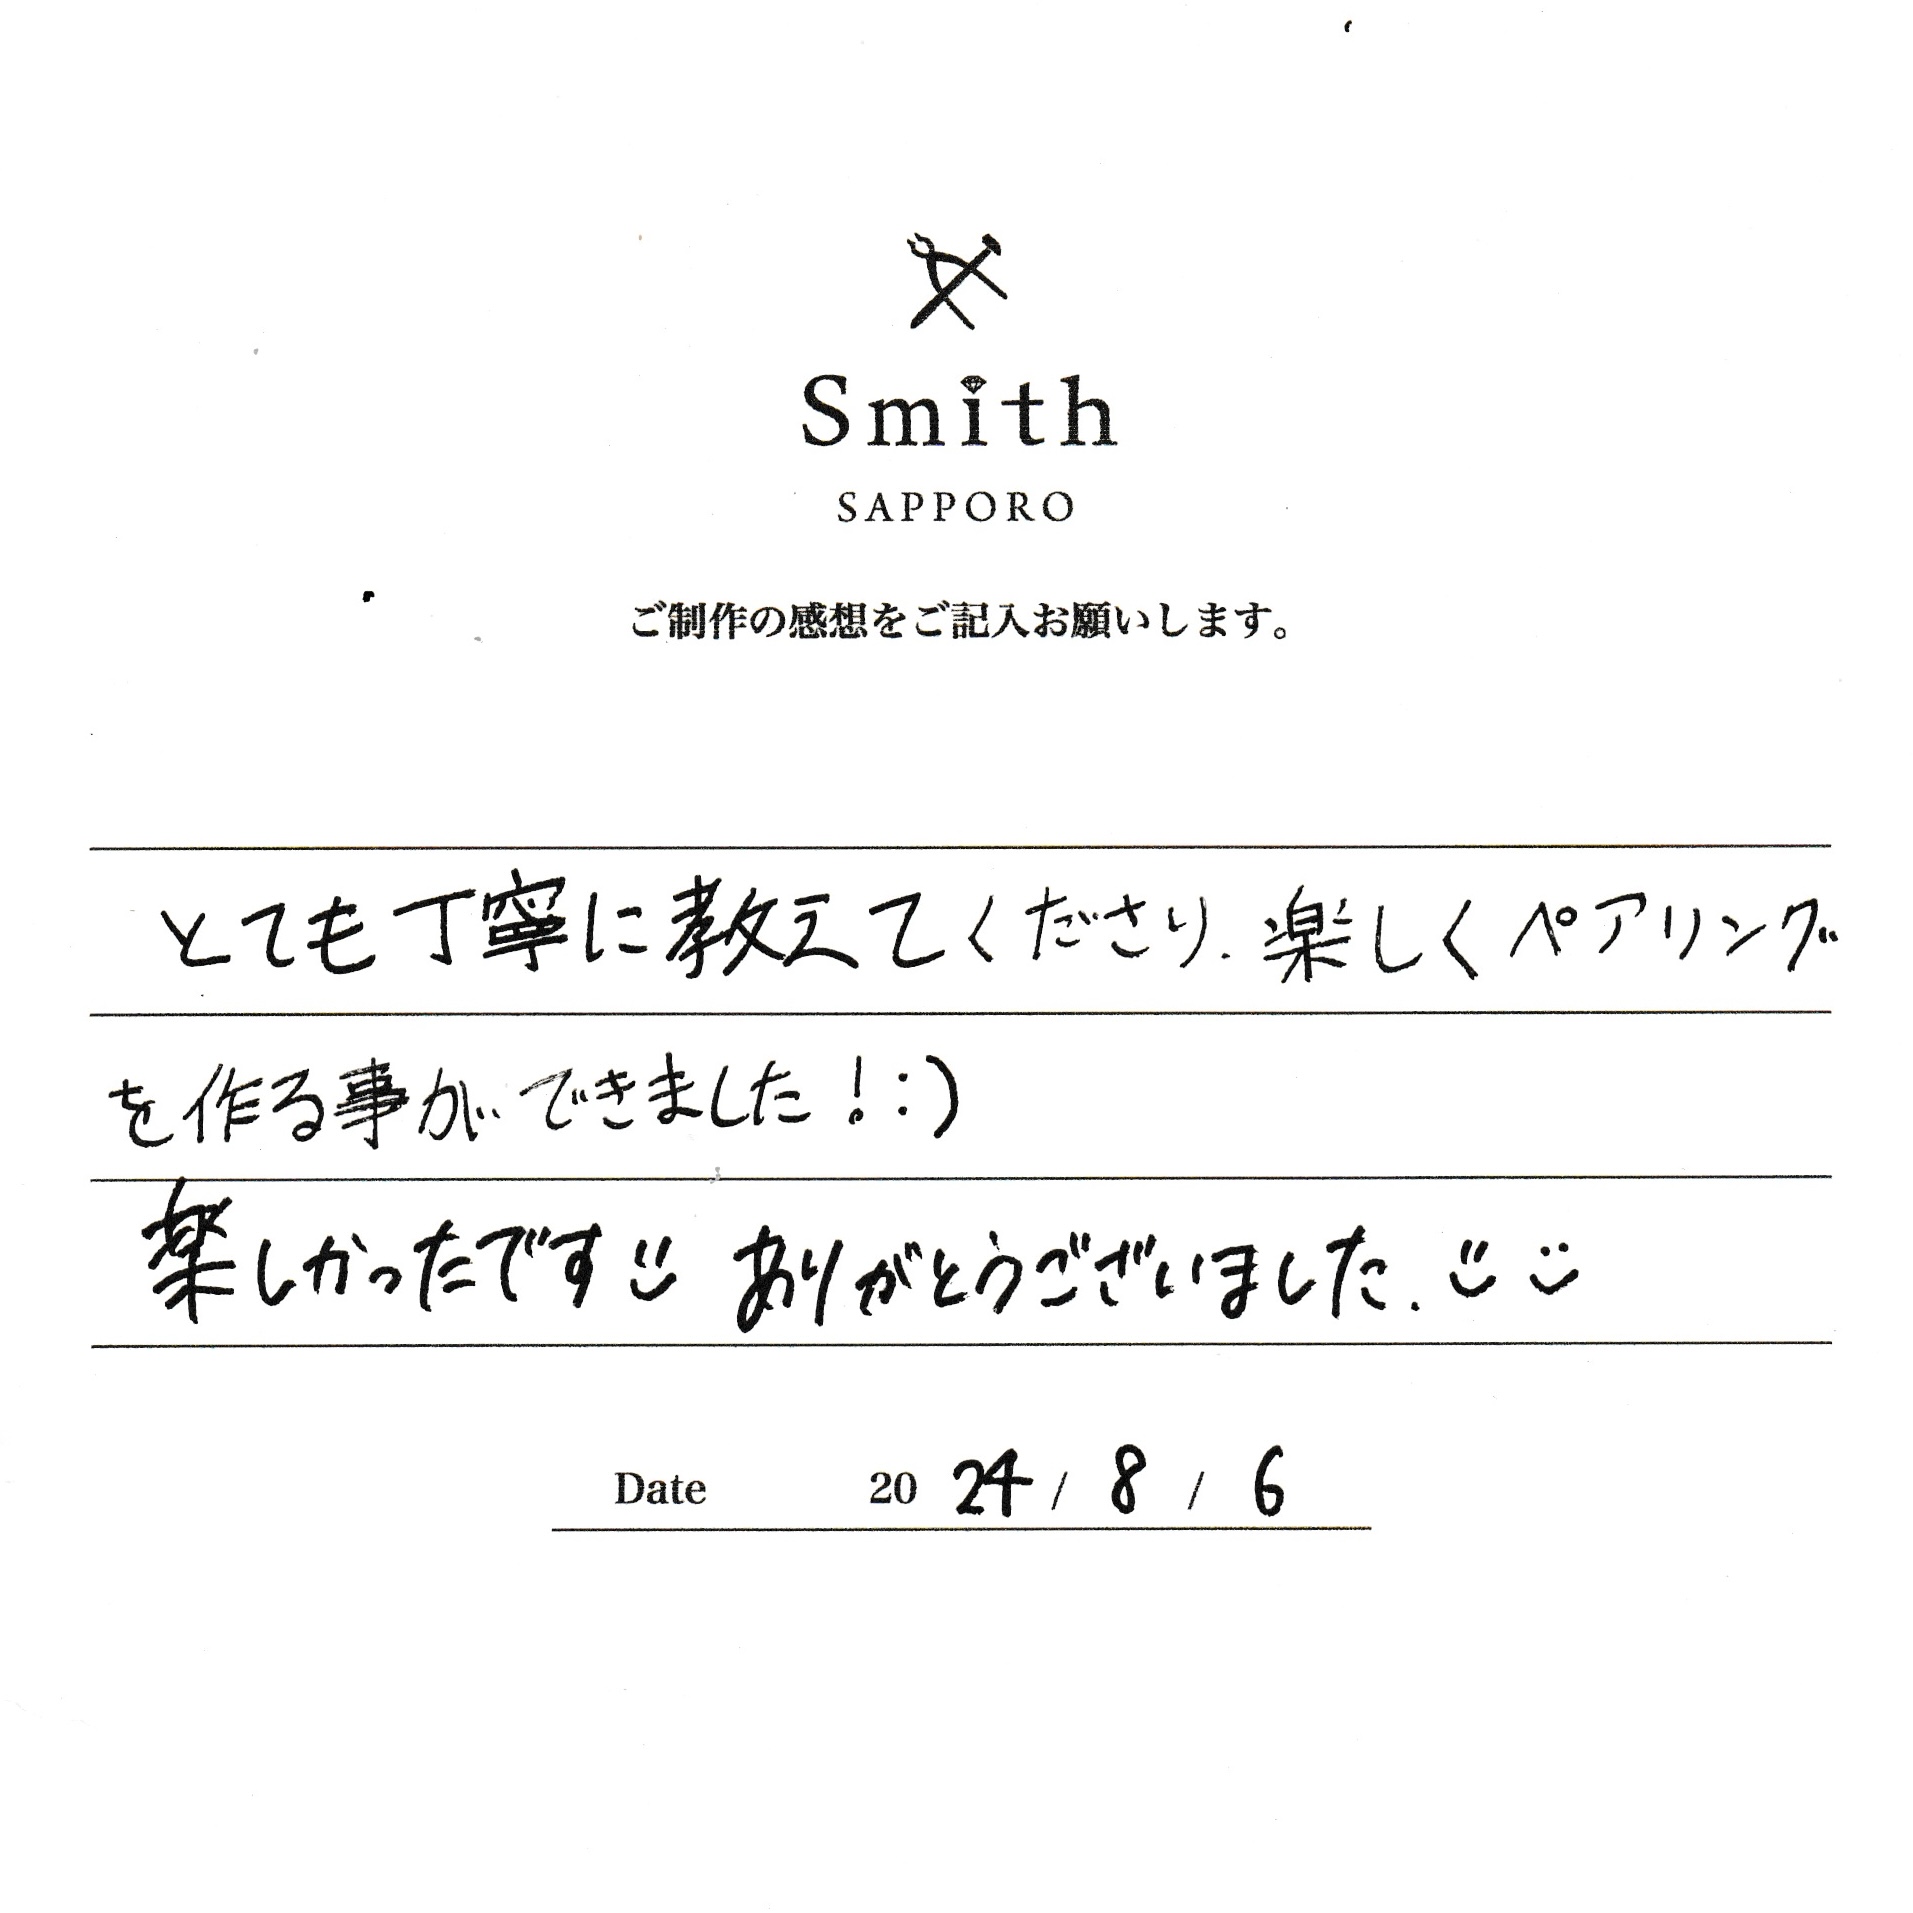 Smith
SAPPORO
ご制作の感想をご記入お願いします。
とても丁寧に教えてくださり、楽しくペアリング
を作る事ができました！:)
楽しかったです ありがとうございました。
Date 2024 / 8 / 6